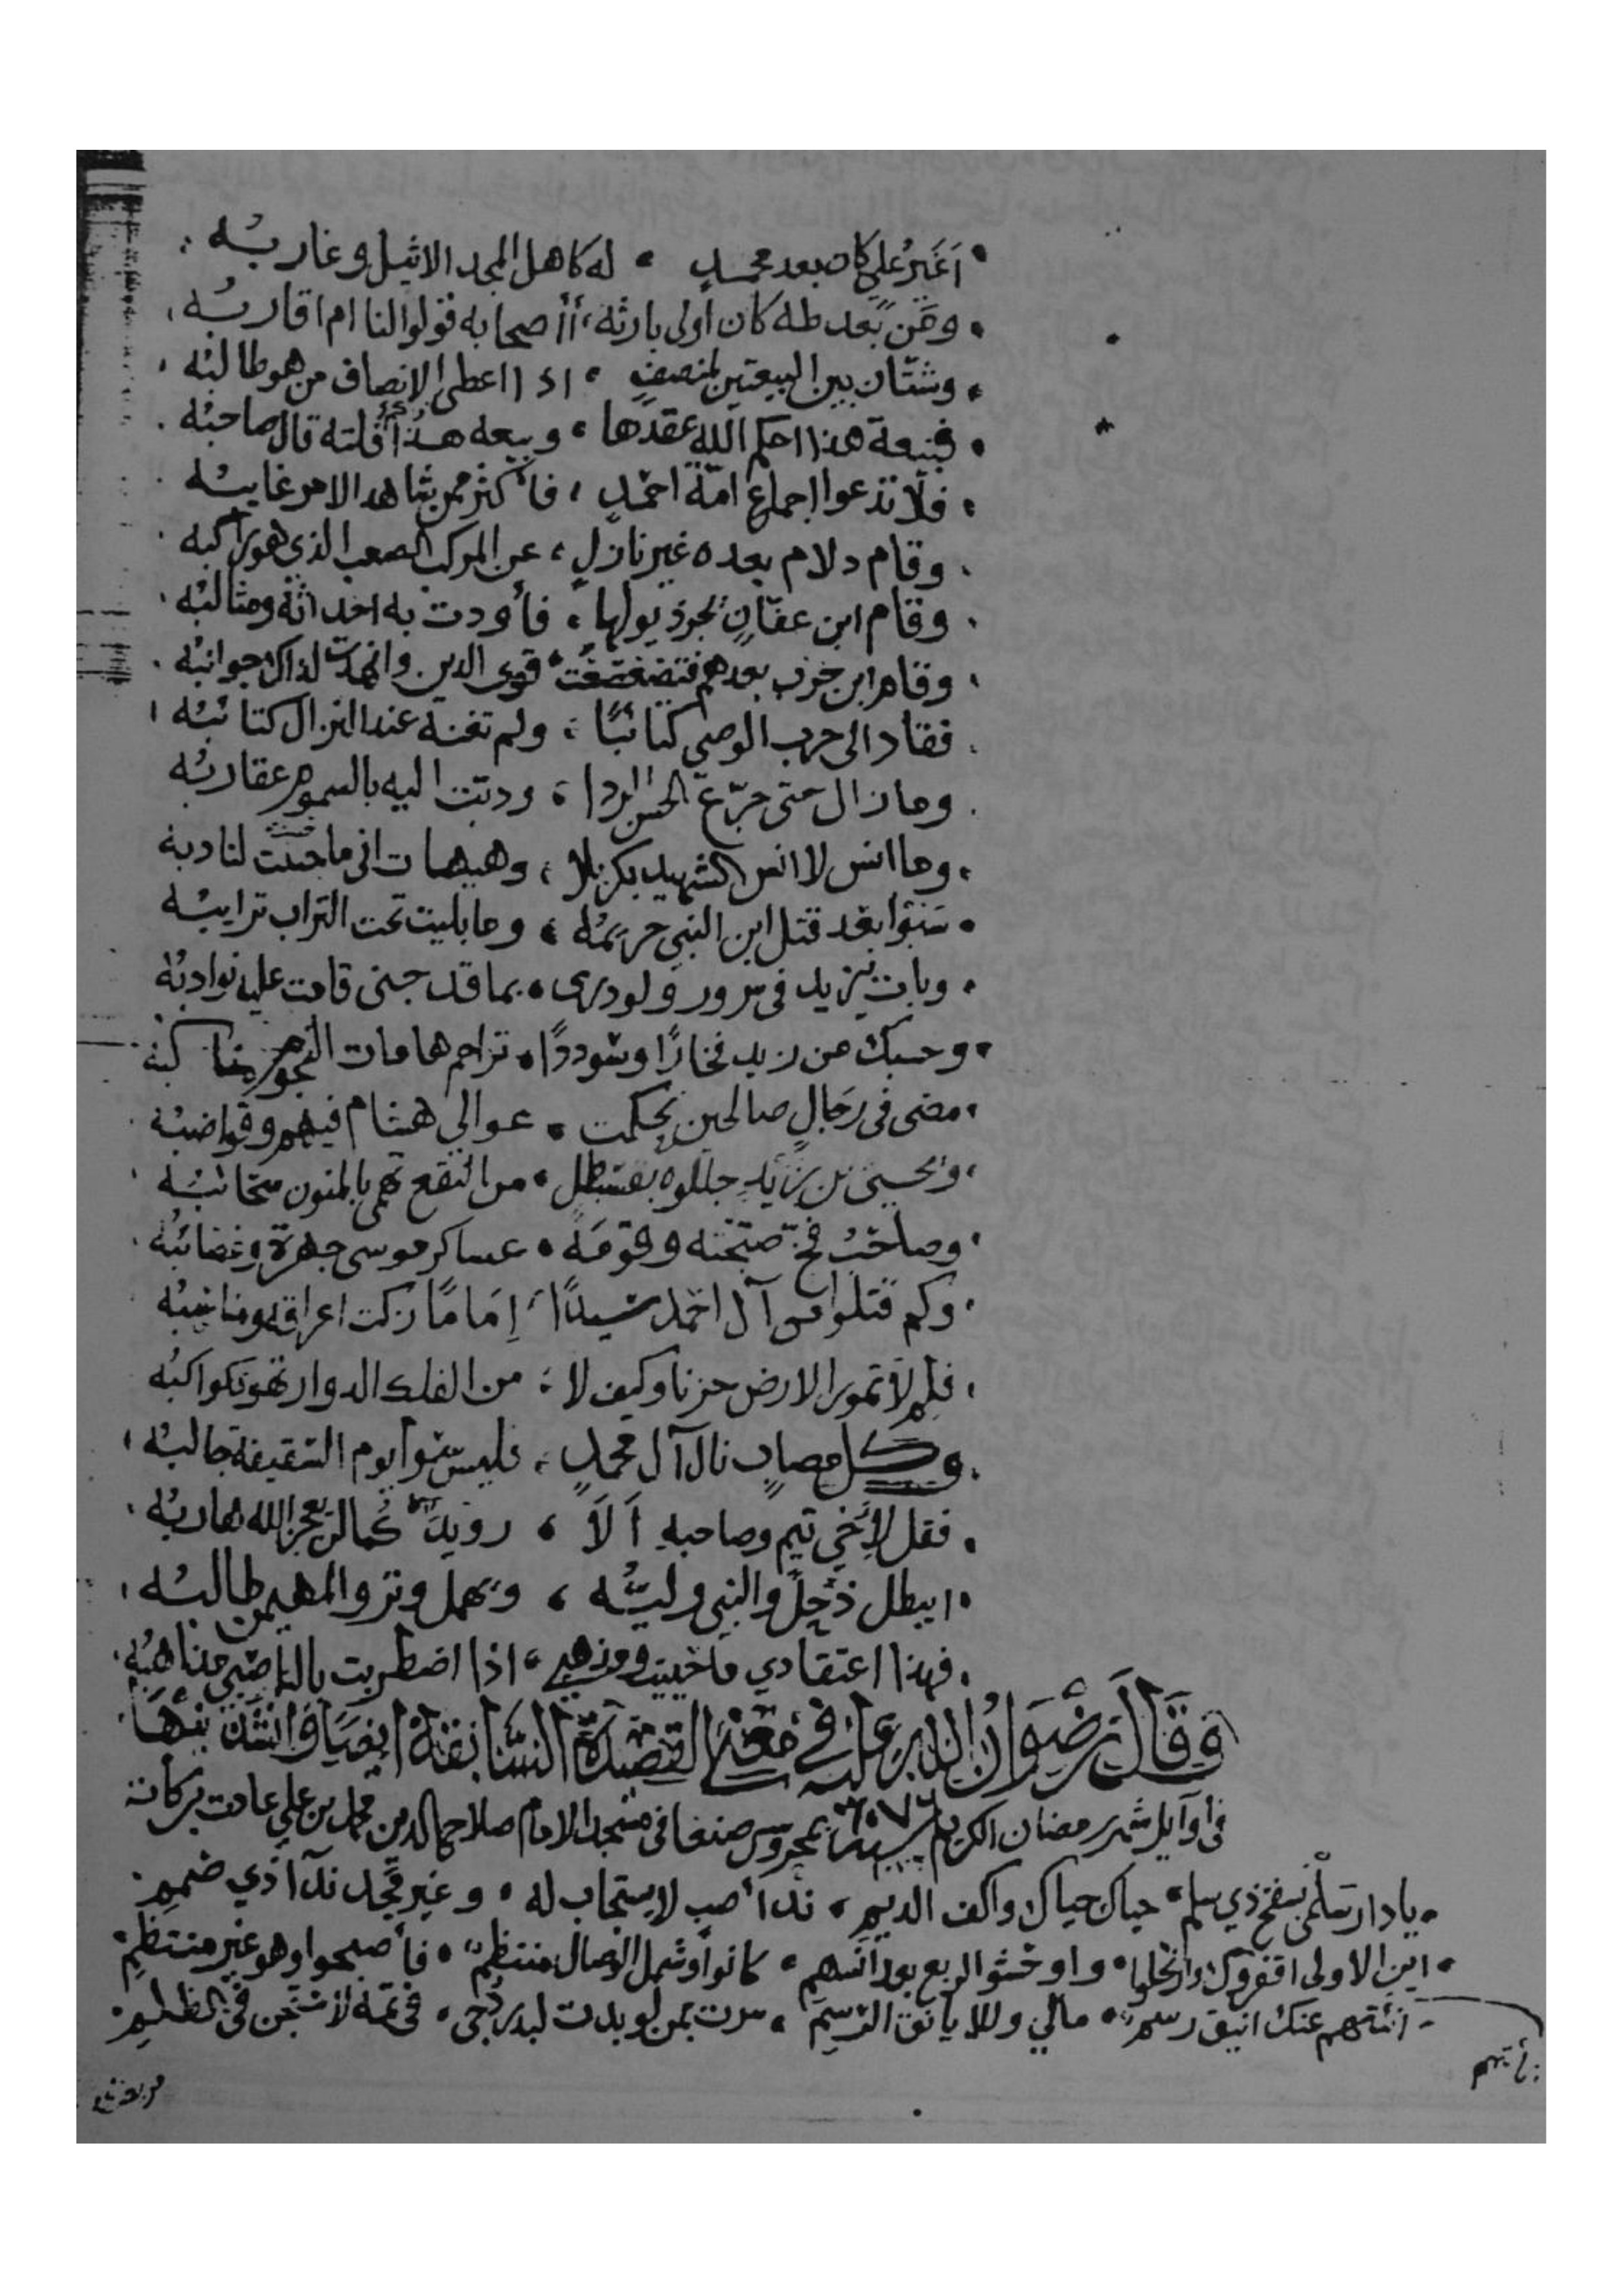 أغير علي كان بعد محمد • له كاهل المجد الاثيل وغاربه
ومن بعد طه كان أولى بارثه • أأصحابه قولوا لنا ام اقاربه
وشتان بين البيعتين لمنصف • اذا اعطى الإنصاف من هو طالبه
فبيعة هذا احكم الله عقدها • وبيعه هذا فلتة قال صاحبه
فلا تدعوا إجماع امة احمد • فأكثر ممن شاهد الامر غايبه
وقام دلام بعده غير نازل • عن المركب الصعب الذي هو راكبه
وقام ابن عفان يجر ذيولها • فأودت به احداثه ومثالبه
وقام ابن حرب بعدهم فتضعضعت • قوى الدين وانهدت لذاك جوانبه
فقاد الى حرب الوصي كتائبا • ولم تغنه عند النزال كتائبه
وما زال حتى جرع الحسن الردا • ودبت اليه بالسموم عقاربه
وما انس لا انس الشهيد بكربلا • وهيهات اني ما حييت لنادبه
سبوا بعد قتل ابن النبي حريمه • وما بليت تحت التراب ترايبه
وبات يزيد في سرور ولو درى • بما قد جنى قامت عليه نوادبه
وحسبك من زيد فخارًا وسوددًا • تزاحم هامات النجوم مناكبه
مضى في رجال صالحين تحكمت • عوالي هشام فيهم وقواضبه
ويحيى بن زيد جللوه بقسطل • من النقع تهمي بالمنون سحائبه
وصاحب فخ صبحته وقومه • عساكر موسى جهرة وعصائبه
وكم قتلوا من آل احمد سيدًا • إمامًا زكت اعراقه ومناسبه
فلم لا تمور الارض حزنا وكيف لا • من الفلك الدوار تهوي كواكبه
وكل مصاب نال آل محمد • فليس سوا يوم السقيفة جالبه
فقل لأخي تيم وصاحبه ألا • رويدكما لن يعجز الله هاربه
ايبطل ذحل والنبي وليه • ويهمل وتر والمهيمن طالبه
فهذا اعتقادي ما حييت ومذهبي • اذا اضطربت بالناصبي مذاهبه
وقال رضوان الله عليه في معنى القصيدة السابقة ايضا وانشدنيها
في أوايل شهر رمضان الكريم سنة بمحروس صنعا في مسجد الامام صلاح الدين محمد بن علي عادت بركاته
يا دار سلمى بسفح ذي سلم • حياك حياك واكف الديم • ندا صب لا يستجاب له • وغير مجد ندآ ذي صمم
اين الاولى اقفروك وارتحلوا • واوحشوا الربع بعد انسهم • كانوا وشمل الوصال منتظم • فأصبحوا وهو غير منتظم
عنك انيق رسم • مالي وللايانق الرسم • سرت بمن لو بدت لبدر دجى • في تمه لاستجن في الظلم